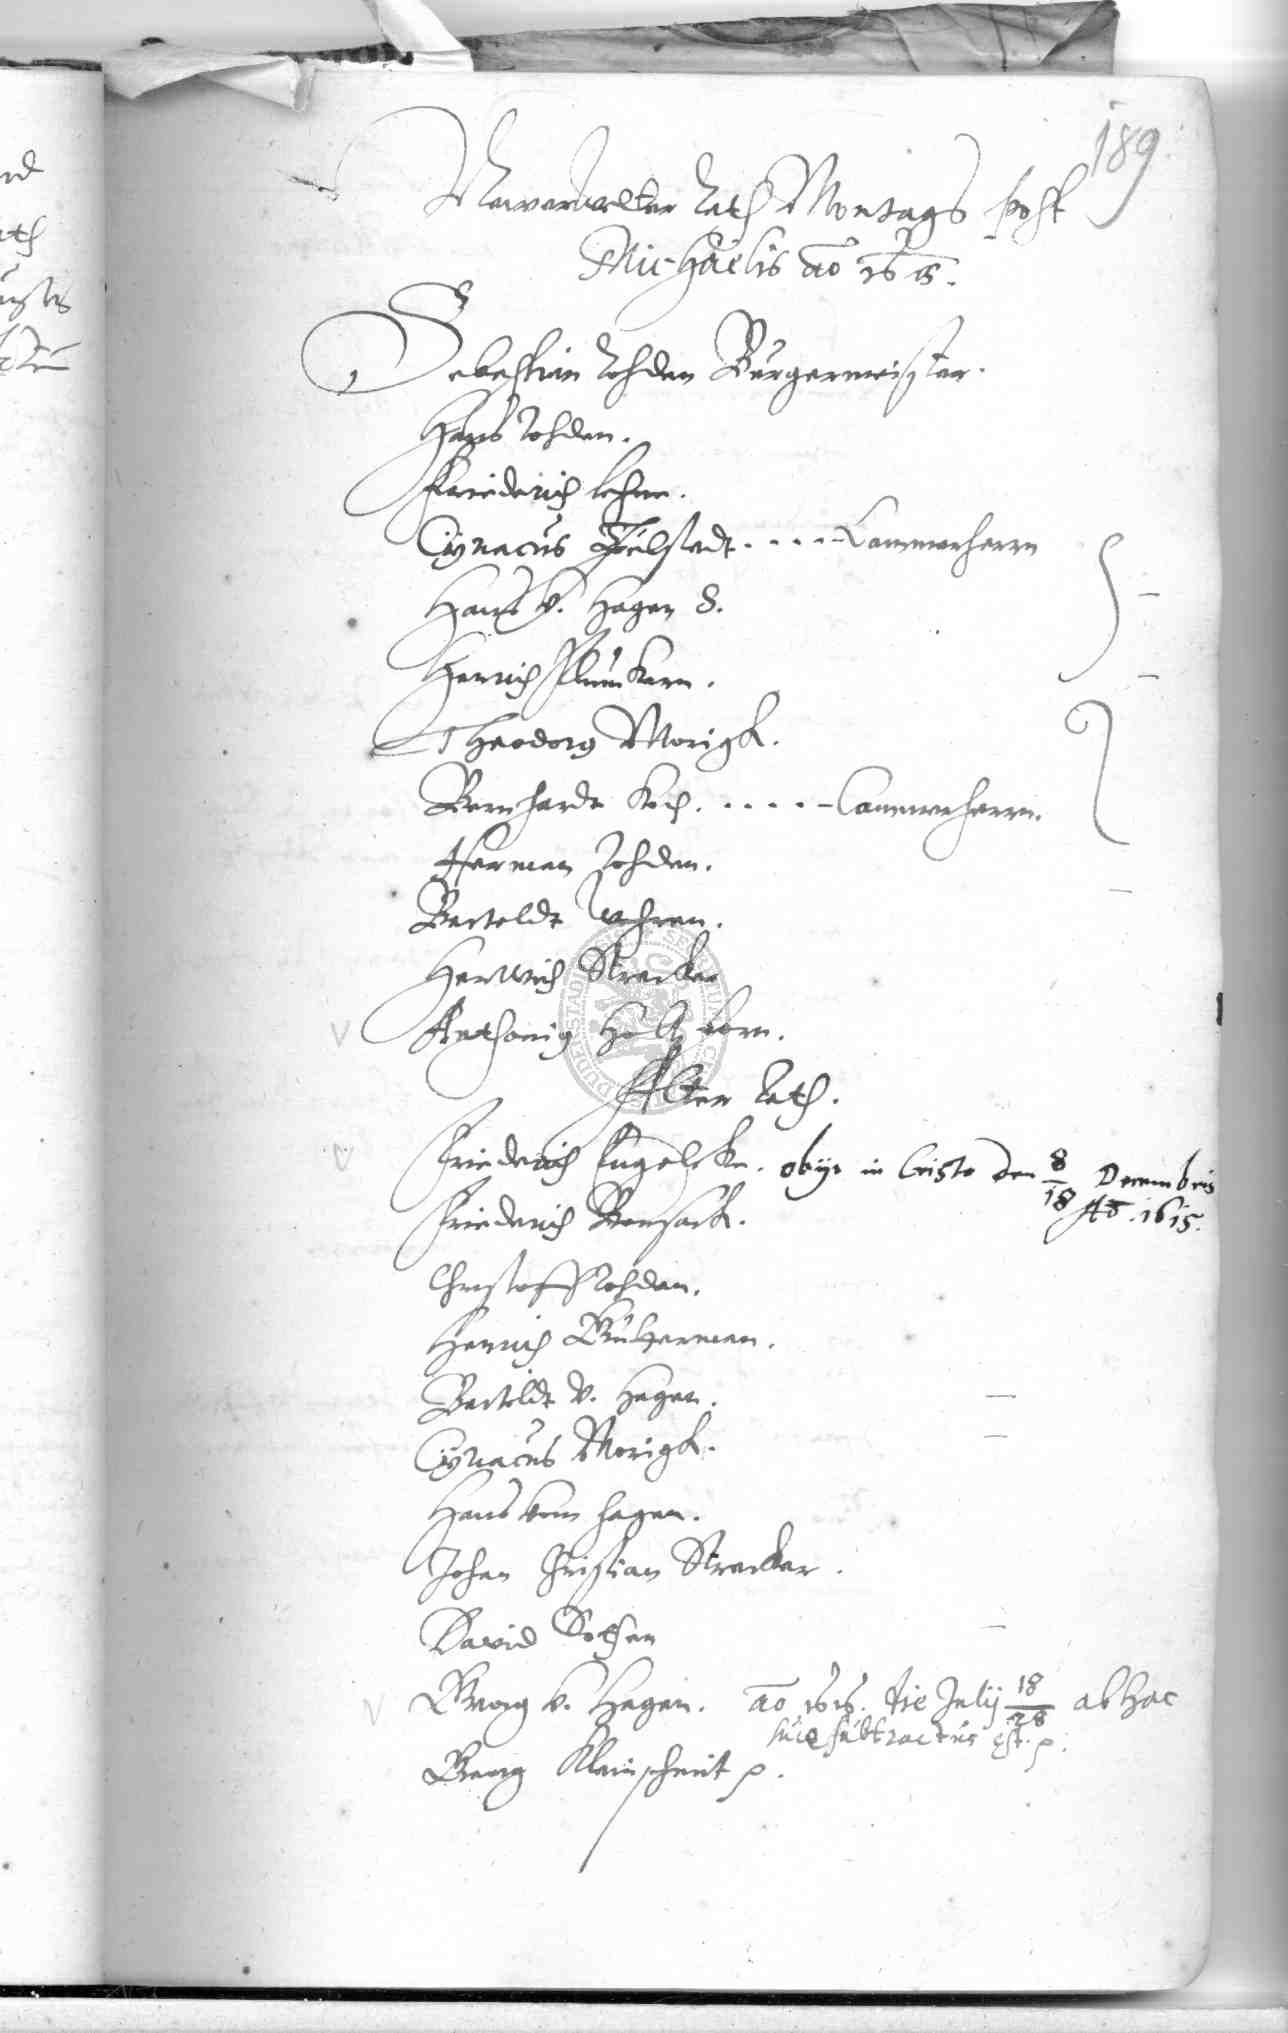 189
Newerwelter Rath Montags post
Michaelis ao 1615.
Sebastian Rohden Bürgermeister.
Hans Rohden.
Friederich Lehne.
Ciriacus Helstadt . . . . - Cammerherrn
Hans v. Hagen S.
Henrich
Theodorg Morigk.
Bernhardt Koch. . . . . . - Cammerherrn.
Herman Rohden.
Bertoldt
Hertwich Strecker
Anthonig
Alter Rath.
Friederich Engelcke. obijt in Cristo den 8/18 Decembris
Ao. 1615.
Friederich Bonsack.
Christoff Rohden.
Henrich
Bertoldt v. Hagen.
Ciriacus Morigk.
Hans vom Hagen.
Johan Christian Strecker.
David Bothen
Georg v. Hagen. ao 1615. die Julij 18/28 ab hac
luce subtractus est. p.
Georg Kleinschmit p.